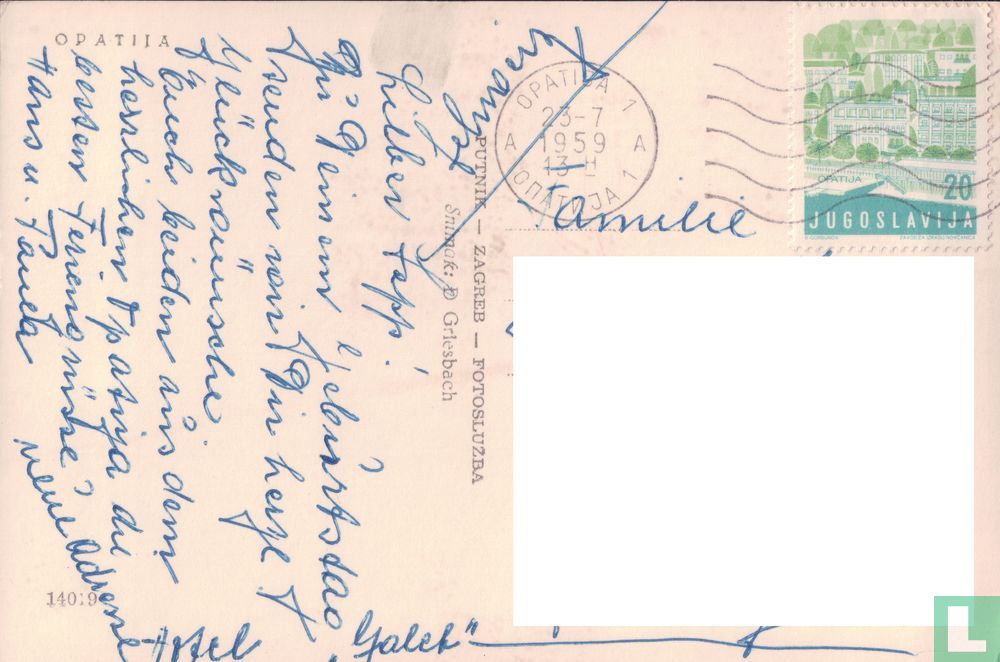 OPATIJA
Lieber Sepp!
Zu Deinem Geburtstag
senden wir Dir herzl.
Glückwünsche.
Euch beiden aus dem
herrlichen Opatija die
besten Feriengrüsse
Hans u. Paula
meine Adresse
Hotel "Galeb"
14019
PUTNIK — ZAGREB — FOTOSLUŽBA
Snimak: Đ Griesbach
OPATIJA 1
23-7
A 1959 A
13-H
ОПАТИЈА 1
Familie
OPATIJA
20
JUGOSLAVIJA
L